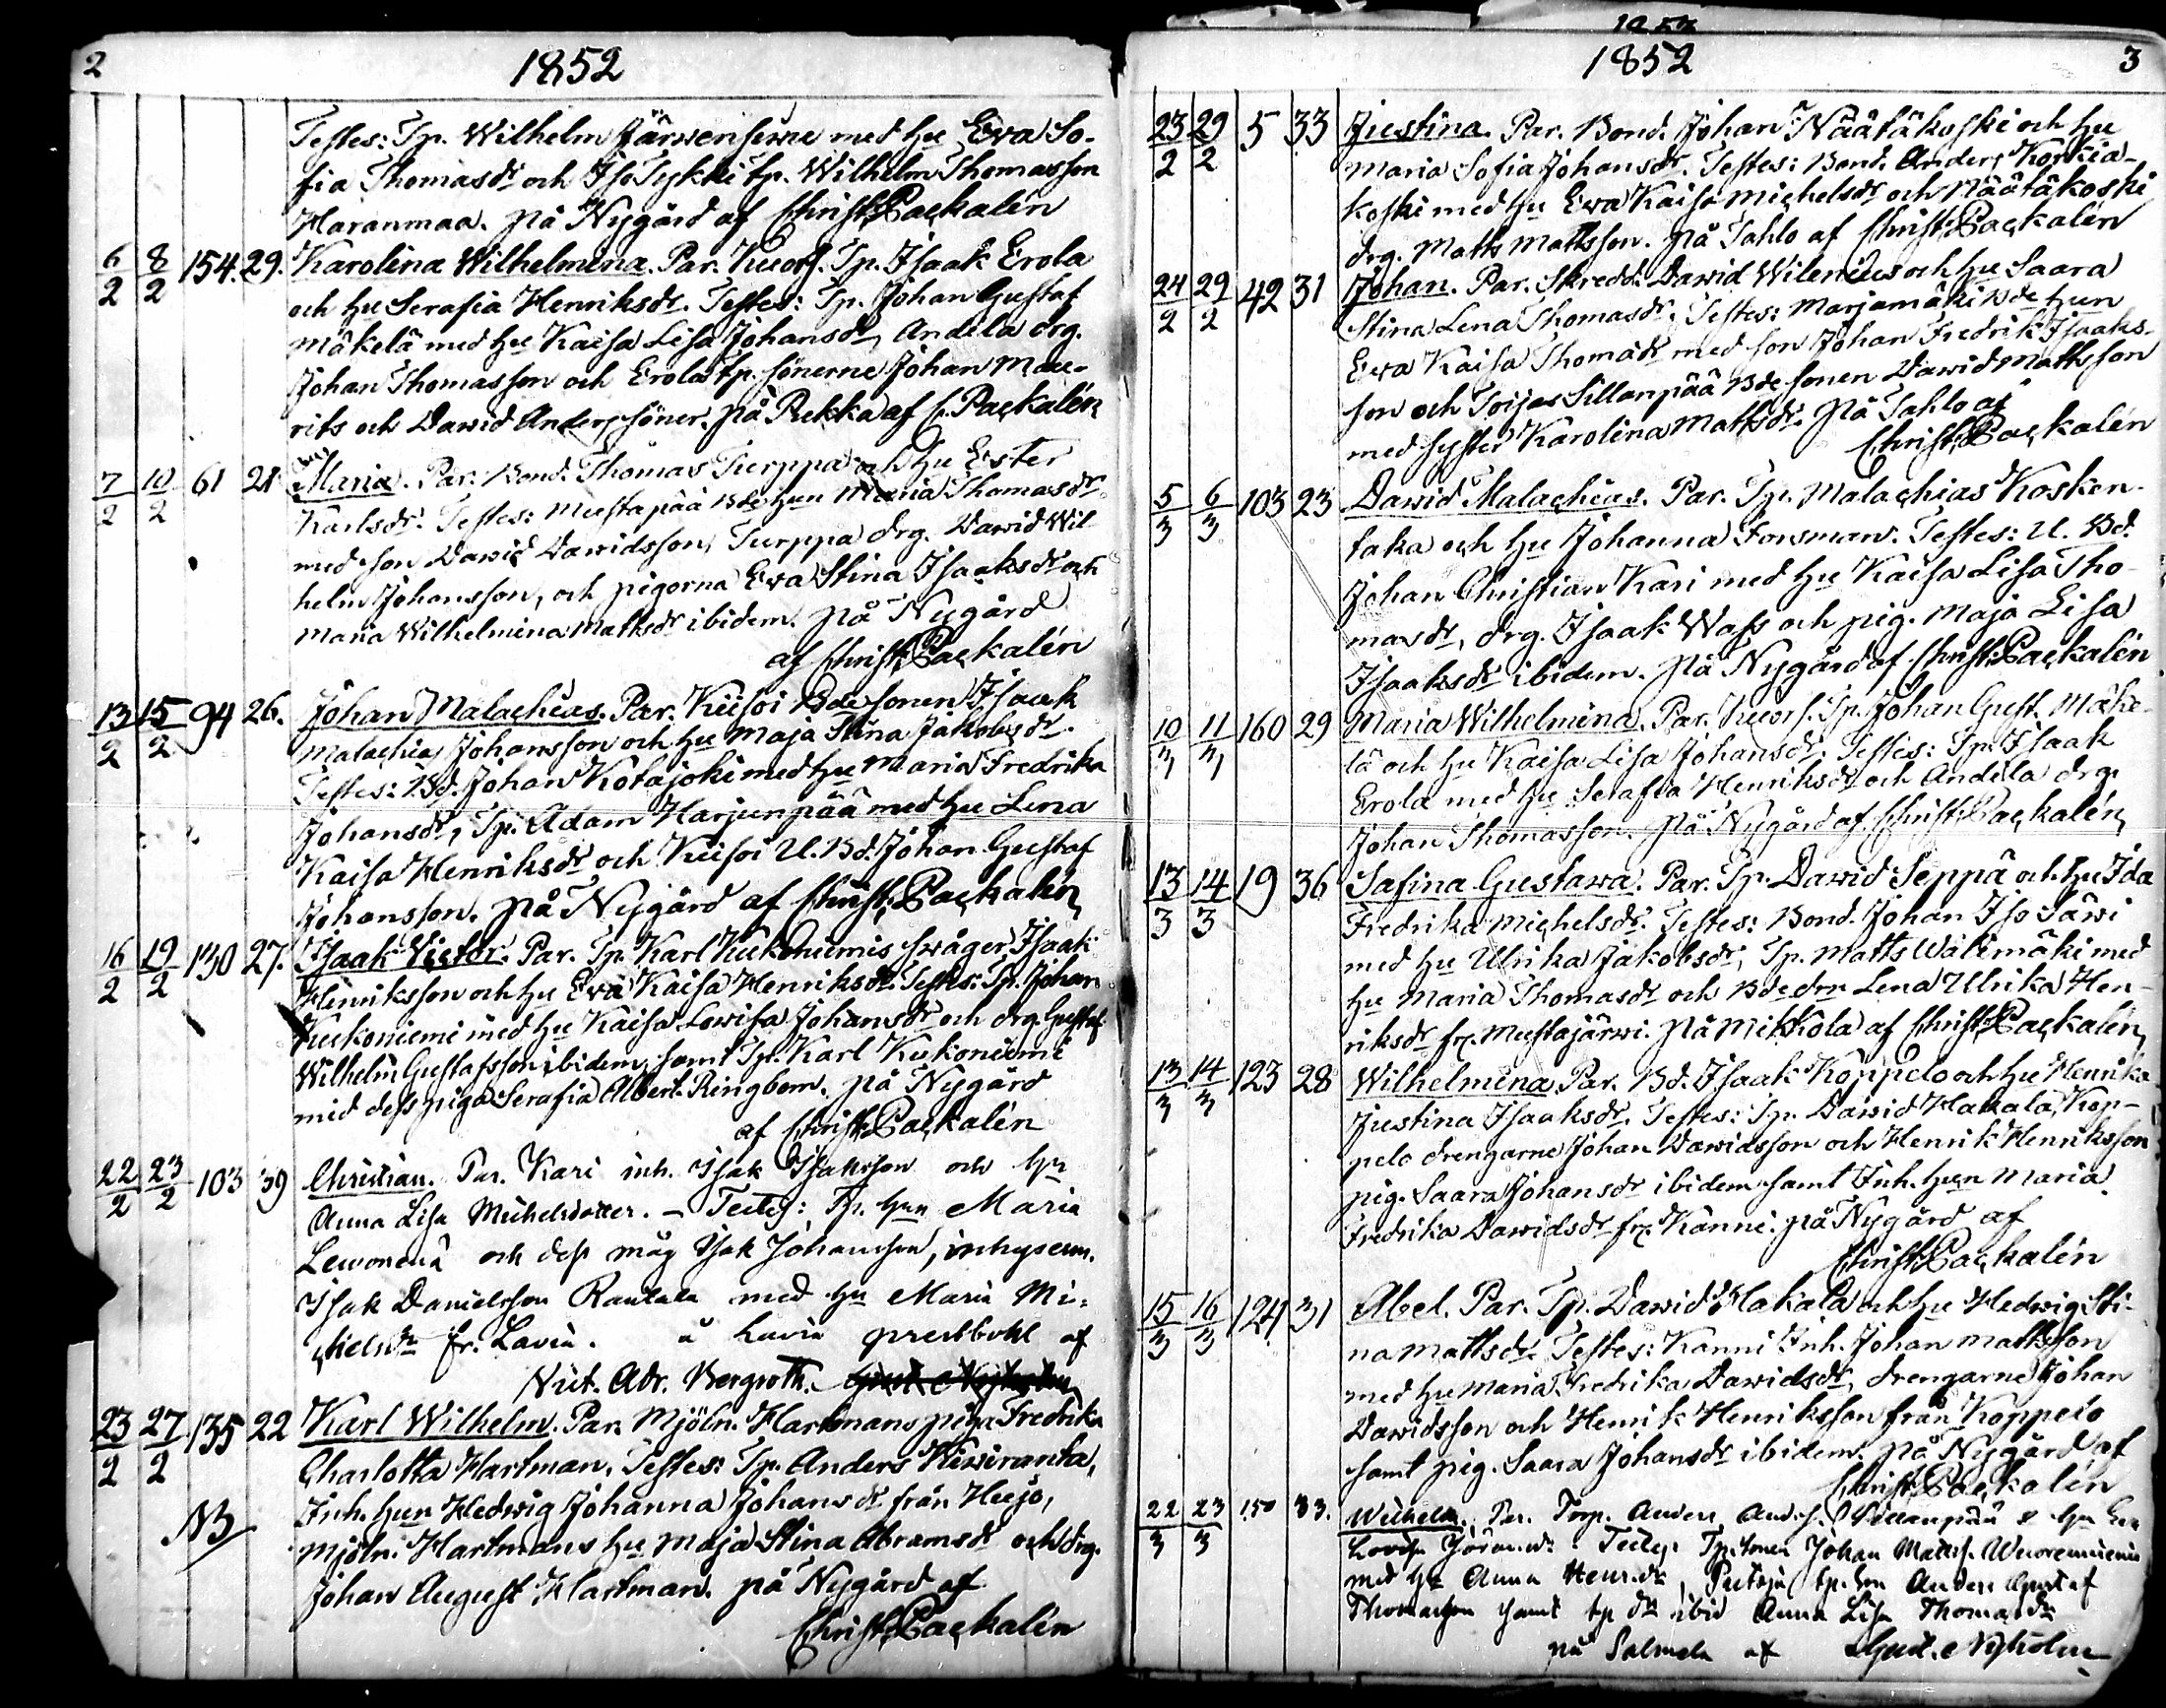 2
1852
Testes: Tp. Wilhelm Järwensiwu med hu Eva So-
fia Thomasdr och Iso Tykki tp. Wilhelm Thomasson
Haranmaa. på Nygård af Christ. Packalén
6/2 8/2 154. 29. Karolina Wilhelmina. Par. Kuorf. Tp. Isaak Erola
och hu Serafia Henriksdr. Testes: Tp. Johan Gustaf
Mäkelä med hu Kaisa Lisa Johansdr, Andila drg.
Johan Thomasson och Erola tp. sönerne Johan Mau-
rits och Dawid Anderssöner. på Pekka af C. Packalén
7/2 10/2 61 21 Maria. Par. Bond. Thomas Turppa och hu Ester
Karlsdr. Testes: Mustapää Bde hun Maria Thomasdr
med son Dawid Dawidsson, Turppa drg. Dawid Wil-
helm Johansson, och pigorna Eva Stina Isaaksdr och
Maria Wilhelmina Mattsdr ibidem. på Nygård
af Christ. Packalén
13/2 15/2 94 26. Johan Malachias. Par. Kiisoi Bde sonen Isaak
Malachias Johansson och hu Maja Stina Jakobsdr.
Testes: Bd. Johan Kotajoki med hu Maria Fredrika
Johansdr, Tp. Adam Harjunpää med hu Lena
Kaisa Henriksdr och Kiisoi U. Bd. Johan Gustaf
Johansson. på Nygård af Christ. Packalén
16/2 19/2 130 27. Isaak Victor. Par. Tp. Karl Kukoniemis swåger Isaak
Henriksson och hu Eva Kaisa Henriksdr. Testes: Tp. Johan
Kukoniemi med hu Kaisa Lowisa Johansdr och drg. Gustaf
Wilhelm Gustafsson ibidem, samt Tp. Karl Kukoniemi
med dess piga Serafia Albert. Ringbom. på Nygård
af Christ. Packalén
22/2 23/2 103 39 Christian. Par. Kari inh. Isak Isaksson och hu
Anna Lisa Michelsdotter. – Testes: Tp. hun Maria
och dess måg Isak Johansson, inhysesm.
Isak Danielsson Rautala med hu Maria Mi-
chelsdr fr. Lavia. å Lavia prestbohl af
Vict. Adr. Bergroth.
23/2 27/2 135 22 Karl Wilhelm. Par. Mjöln. Hartmans piga Fredrika
Charlotta Hartman. Testes: Tp. Anders Kiwiranta,
Inh. hun Hedwig Johanna Johansdr från Hujo,
NB Mjöln. Hartmans hu Maja Stina Abramsdr och drg.
Johan August Hartman. på Nygård af
Christ. Packalén
1852
3
23/2 29/2 5 33 Justina. Par. Bond. Johan Näätäkoski och hu
Maria Sofia Johansdr. Testes: Bond. Anders Korkia-
koski med hu Ewa Kaisa Michelsdr och Näätäkoski
drg. Matts Mattsson. på Tahlo af Christ. Packalén
24/2 29/2 42 31 Johan. Par. Skredd. Dawid Wilenius och hu Saara
Stina Lena Thomasdr. Testes: Marjamäki Bde hun
Ewa Kaisa Thomadr med son Johan Fredrik Isaaks-
son och Toijas Sillanpää Bde sonen Dawid Mattsson
med syster Karolina Mattsdr. på Tahlo af
Christ. Packalén
5/3 6/3 103 23 Dawid Malachias. Par. Tp. Malachias Kosken-
taka och hu Johanna Forsman. Testes: U. Bd.
Johan Christian Kari med hu Kaisa Lisa Tho-
masdr, drg. Isaak Wass och pig. Maja Lisa
Isaaksdr ibidem. på Nygård af Christ. Packalén
10/3 11/3 160 29 Maria Wilhelmina. Par. Kuorf. Tp. Johan Gust. Mäke-
lä och hu Kaisa Lisa Johansdr. Testes: Tp. Isaak
Erola med hu Serafia Henriksdr och Andila drg.
Johan Thomasson. på Nygård af Christ. Packalén
13/3 14/3 19 36 Safina Gustawa. Par. Tp. Dawid Seppä och hu Ida
Fredrika Michelsdr. Testes: Bond. Johan Iso Säwi
med hu Ulrika Jakobsdr, Tp. Matts Wälimäki med
hu Maria Thomasdr och Bde dtn Lena Ulrika Hen-
riksdr fr. Mustajärwi. på Mikkola af Christ. Packalén
13/3 14/3 123 28 Wilhelmina. Par. Bd. Isaak Koppelo och hu Henrika
Justina Isaaksdr. Testes: Tp. Dawid Hakala, Kop-
pelo drengarne Johan Dawidsson och Henrik Henriksson
pig. Saara Johansdr ibidem samt Inh. hun Maria
Fredrika Dawidsdr fr. Kanni. på Nygård af
Christ. Packalén
15/3 16/3 124 31 Abel. Par. Tp. Dawid Hakala och hu Hedwig Sti-
na Mattsdr. Testes: Kanni Inh. Johan Mattsson
med hu Maria Fredrika Dawidsdr, drengarne Johan
Dawidsson och Henrik Henriksson från Koppelo
samt pig. Saara Johansdr ibidem. på Nygård af
Christ. Packalén
22/3 23/3 150 33. Wilhelm. Par. Torp. Anders Andersf. Sillanpää & hu Eva
Lovisa Göransdr. Testes: Tp. sonen Johan Mattsf. Wuorenniemi
med hu Anna Henrdr, tp. son Anders Gustaf
Thomasson samt tp dr ibid Anna Lisa Thomasdr
på Salmela af Gust. Nyholm